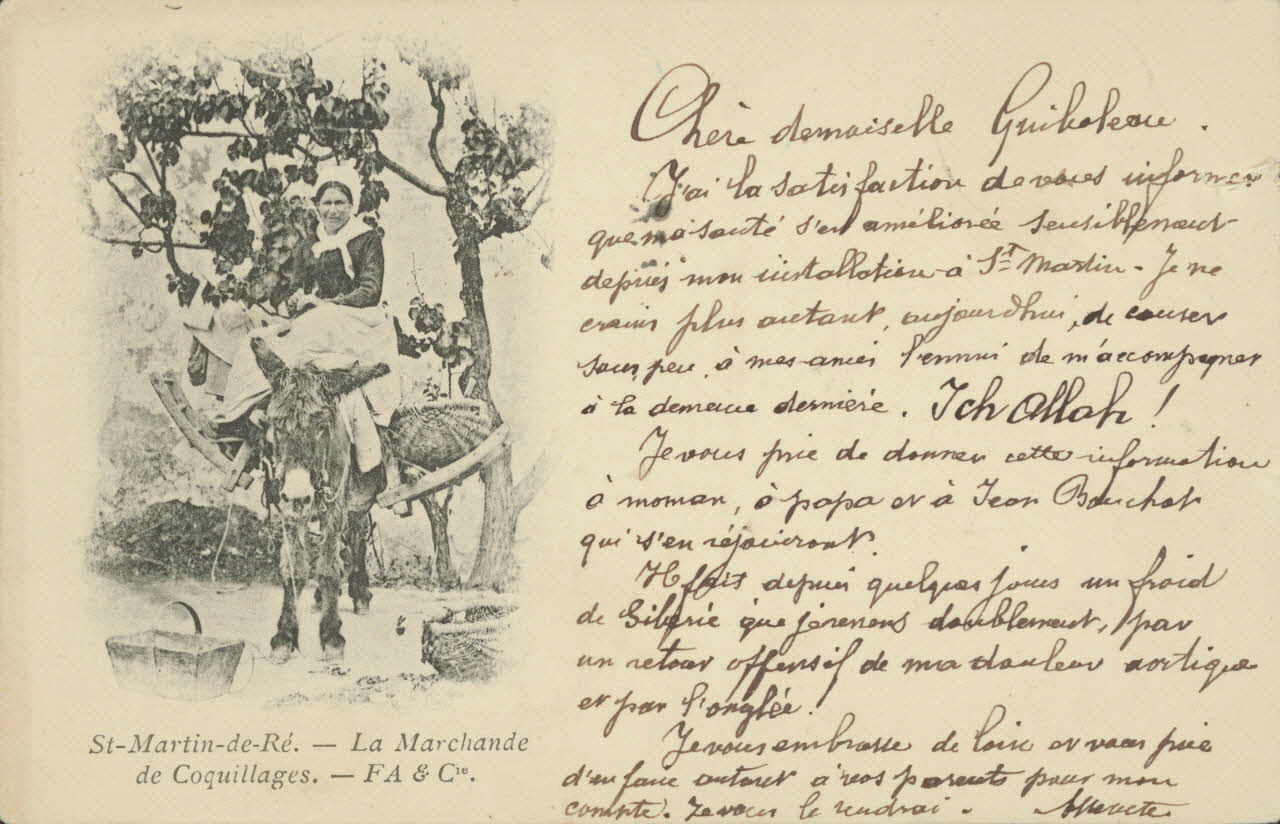 St-Martin-de-Ré. — La Marchande
de Coquillages. — FA & Cie.
Chère demoiselle
J'ai la satisfaction de vous informer
que ma santé s'en améliorée sensiblement
depuis mon installation à St Martin - Je ne
crains plus autant, aujourd'hui, de causer
sous peu, à mes amis l'ennui de m'accompagner
à la demeure dernière. Ich Allah !
Je vous prie de donner cette information
à moman, à papa et à Jean Bouchet
qui s'en réjouiront.
Il fait depuis quelques jours un froid
de Sibérie que je ressens doublement, par
un retour offensif de ma douleur aortique
et par l'onglée.
Je vous embrasse de loin et vous prie
d'en faire autant à vos parents pour mon
compte. Je vous le rendrai.